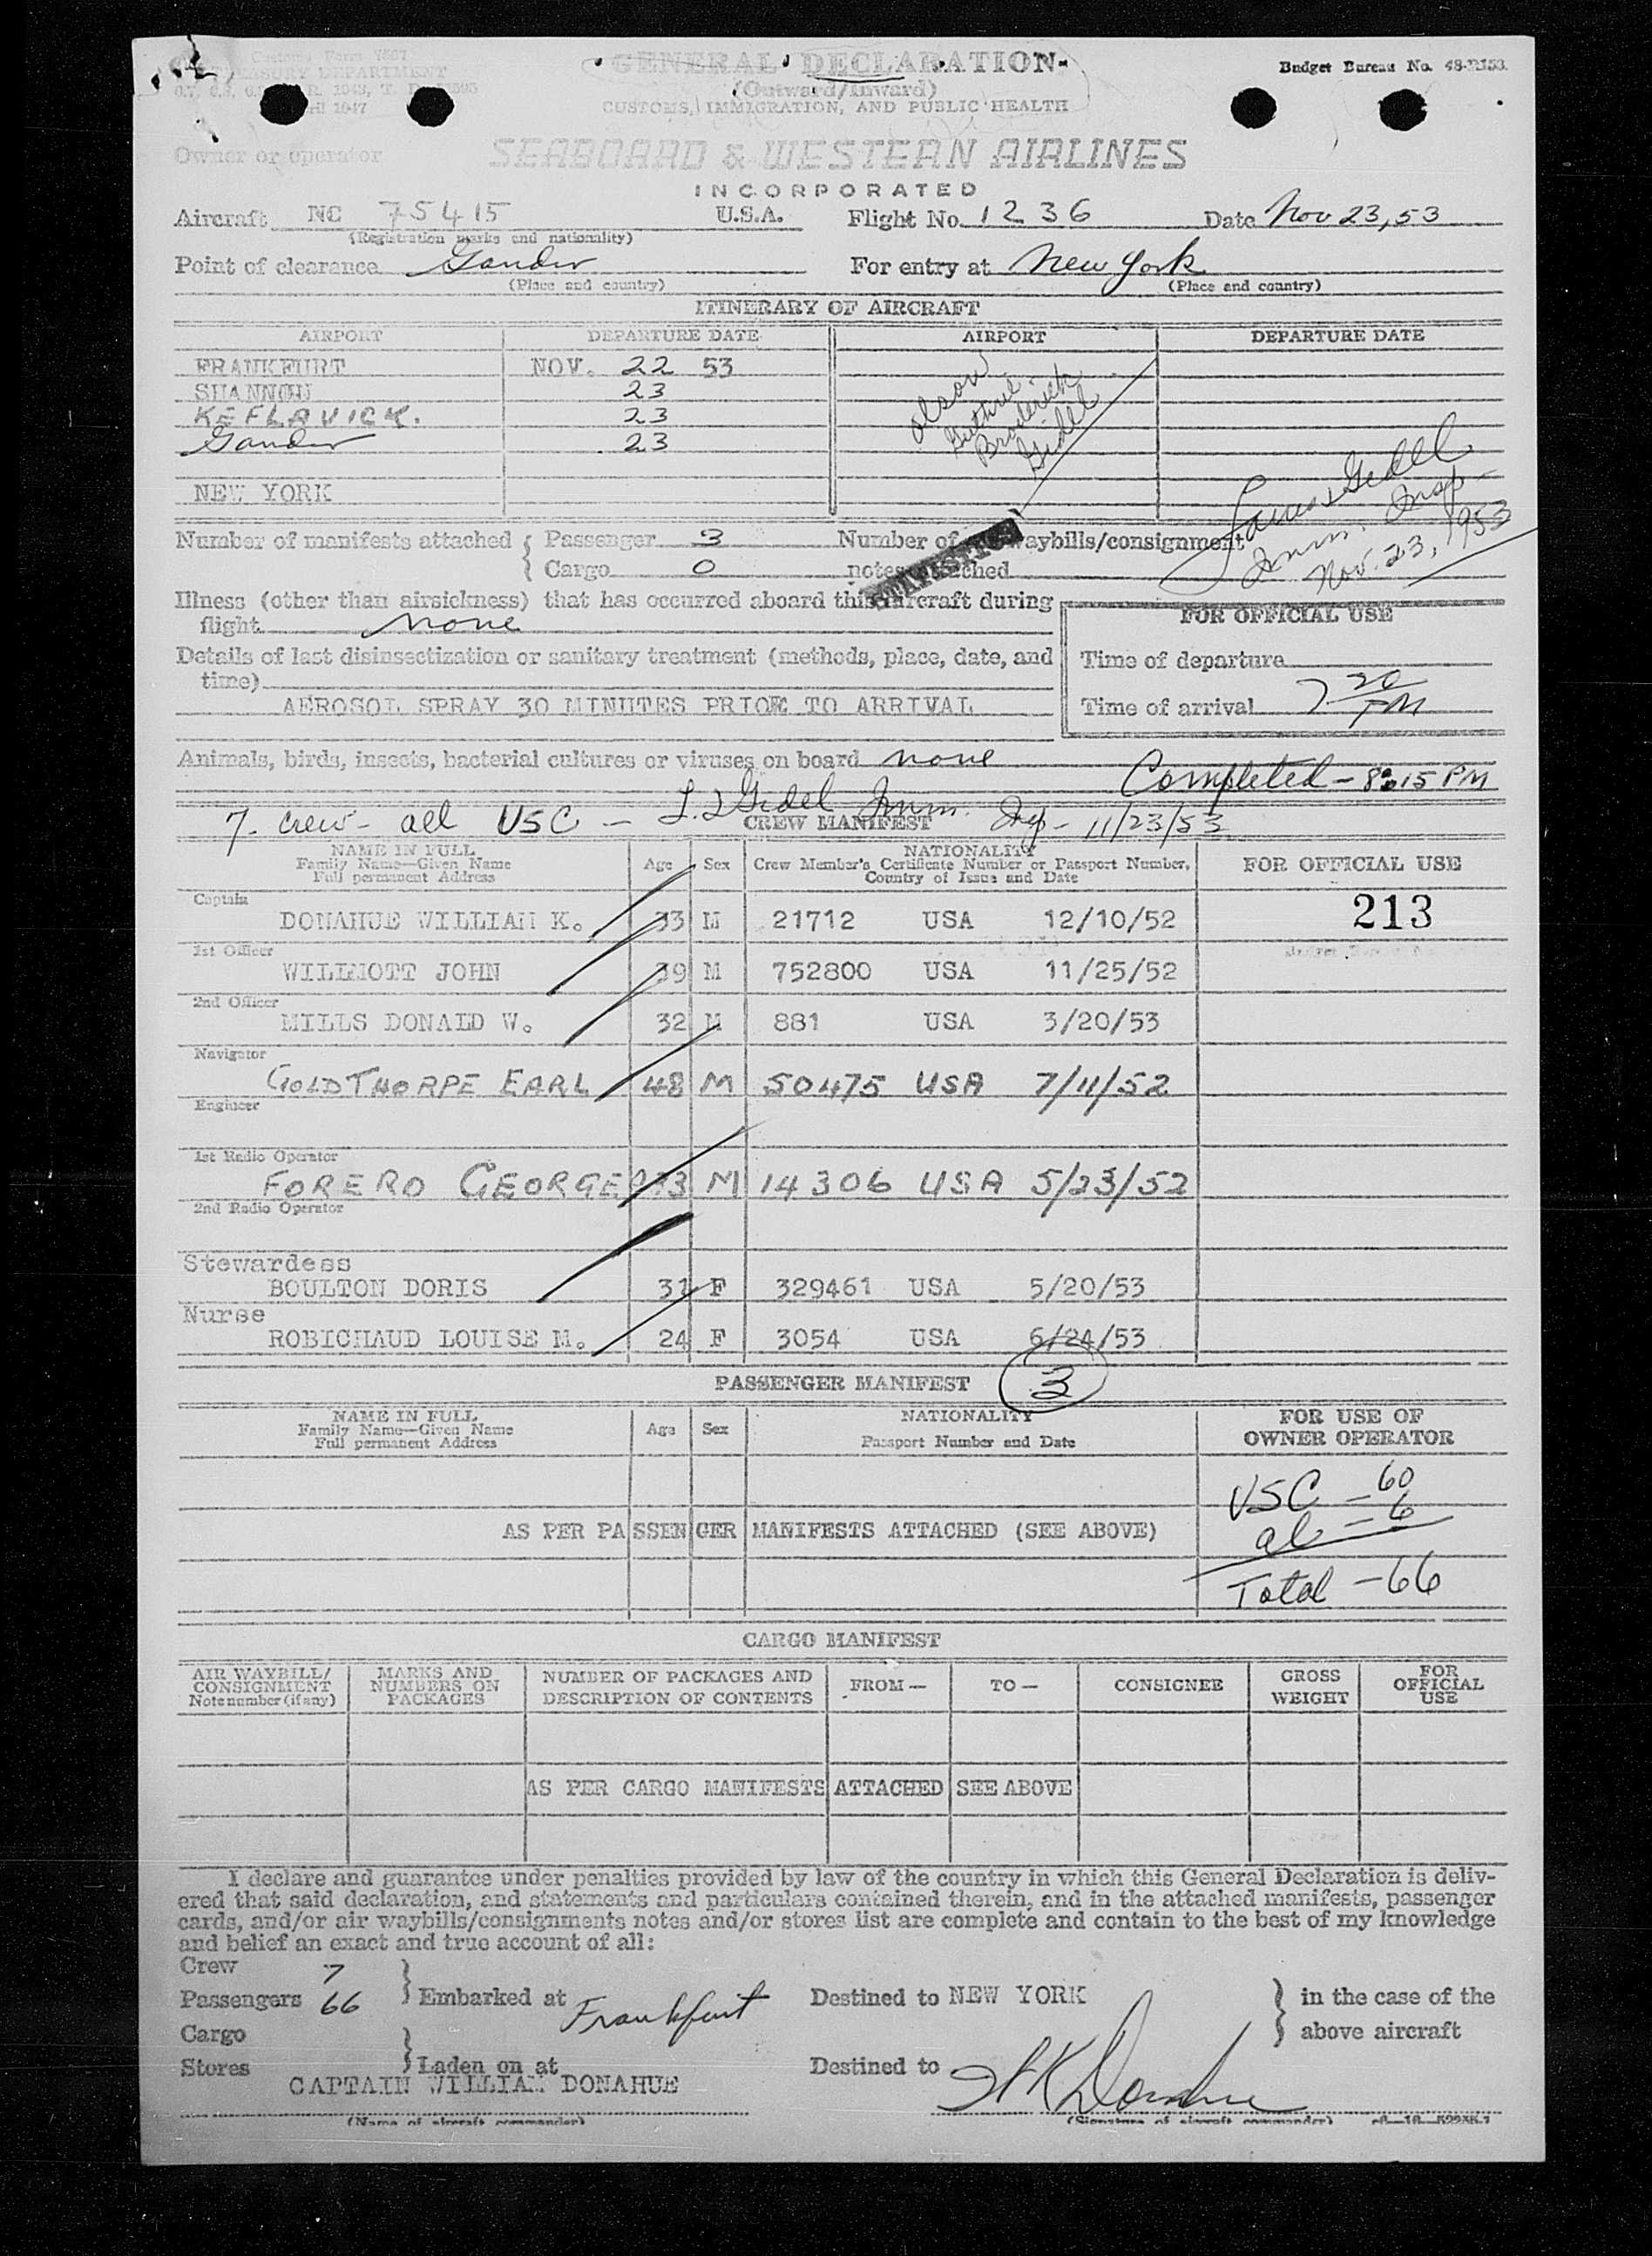 Customs Form 7507
TREASURY DEPARTMENT
GENERAL DECLARATION
(Outward/Inward)
CUSTOMS, IMMIGRATION, AND PUBLIC HEALTH
Budget Bureau No.
Owner or operator
SEABOARD & WESTERN AIRLINES
INCORPORATED
Aircraft NC 75415 U.S.A. Flight No. 1236 Date Nov 23, 53
(Registration marks and nationality)
Point of clearance Gander For entry at New York
(Place and country) (Place and country)
ITINERARY OF AIRCRAFT
AIRPORT DEPARTURE DATE AIRPORT DEPARTURE DATE
FRANKFURT NOV. 22 53
SHANNON 23
KEFLAVICK. 23
Gander 23
NEW YORK
Olson
Guthrie
Broderick
Gidel
Gidel
Imm. Insp.
Nov. 23, 1953
Number of manifests attached { Passenger 3 Number of waybills/consignment
Cargo 0 notes attached
STATISTICS
Illness (other than airsickness) that has occurred aboard this aircraft during
flight None
FOR OFFICIAL USE
Details of last disinsectization or sanitary treatment (methods, place, date, and
time)
AEROSOL SPRAY 30 MINUTES PRIOR TO ARRIVAL
Time of departure
Time of arrival 7 20 PM
Animals, birds, insects, bacterial cultures or viruses on board none
Completed - 8:15 PM
7- crew- all USC - Gidel Imm. 11/23/53
CREW MANIFEST
NAME IN FULL
Family Name—Given Name
Full permanent Address
Age Sex
NATIONALITY
Crew Member's Certificate Number or Passport Number,
Country of Issue and Date
FOR OFFICIAL USE
Captain
DONAHUE WILLIAM K. 33 M 21712 USA 12/10/52 213
1st Officer
WILLMOTT JOHN 39 M 752800 USA 11/25/52
2nd Officer
MILLS DONALD W. 32 M 881 USA 3/20/53
Navigator
GOLDTHORPE EARL 48 M 50475 USA 7/11/52
Engineer
1st Radio Operator
FORERO GEORGE M 14306 USA 5/23/52
2nd Radio Operator
Stewardess
BOULTON DORIS 31 F 329461 USA 5/20/53
Nurse
ROBICHAUD LOUISE M. 24 F 3054 USA 6/24/53
PASSENGER MANIFEST 3
NAME IN FULL
Family Name—Given Name
Full permanent Address
Age Sex
NATIONALITY
Passport Number and Date
FOR USE OF
OWNER OPERATOR
USC - 60
al - 6
Total - 66
AS PER PASSENGER MANIFESTS ATTACHED (SEE ABOVE)
CARGO MANIFEST
AIR WAYBILL/
CONSIGNMENT
Note number (if any)
MARKS AND
NUMBERS ON
PACKAGES
NUMBER OF PACKAGES AND
DESCRIPTION OF CONTENTS
FROM —
TO —
CONSIGNEE
GROSS
WEIGHT
FOR
OFFICIAL
USE
AS PER CARGO MANIFESTS ATTACHED SEE ABOVE
I declare and guarantee under penalties provided by law of the country in which this General Declaration is deliv-
ered that said declaration, and statements and particulars contained therein, and in the attached manifests, passenger
cards, and/or air waybills/consignments notes and/or stores list are complete and contain to the best of my knowledge
and belief an exact and true account of all:
Crew 7
Passengers 66 } Embarked at Frankfurt Destined to NEW YORK } in the case of the
Cargo above aircraft
Stores } Laden on at Destined to
CAPTAIN WILLIAM DONAHUE WK Donahue
(Name of aircraft commander) (Signature of aircraft commander)